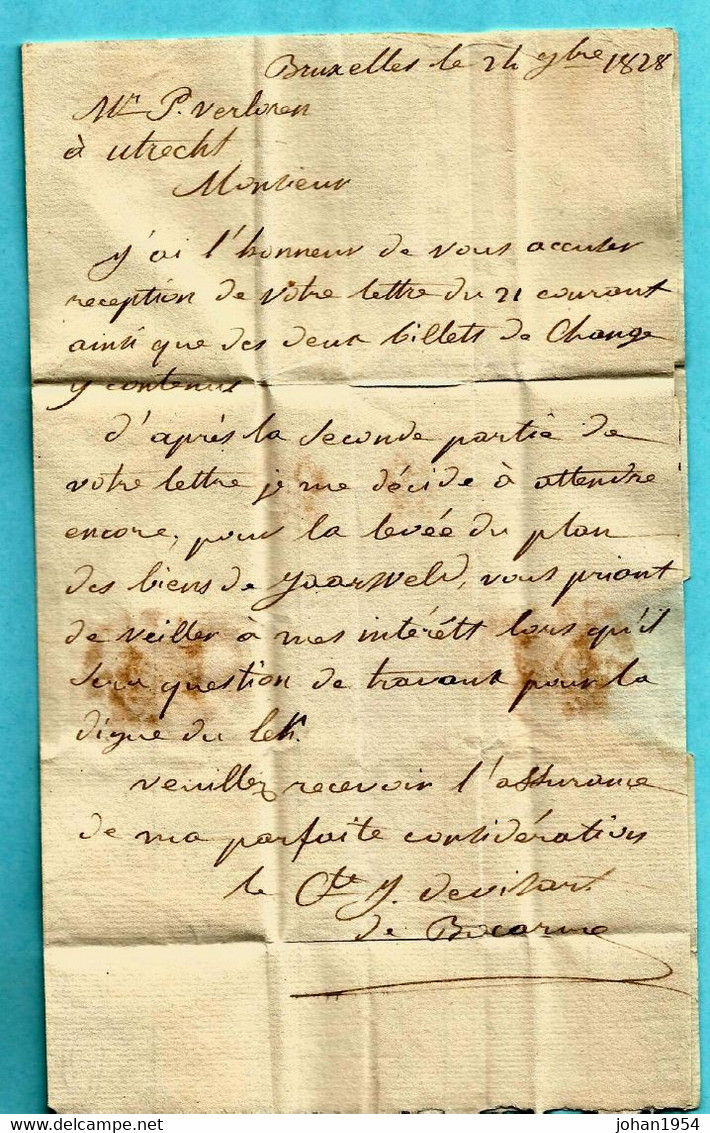 Bruxelles le 24 9bre 1828
Mr P. Verloren
à Utrecht
Monsieur
j'ai l'honneur de vous accuser
reception de votre lettre du 21 courant
ainsi que des deux billets de Change
y contenus
d'après la seconde partie de
votre lettre je me décide à attendre
encore, pour la levée du plan
des biens de Jaarsveld, vous priant
de veiller à mes intérêts lors qu'il
sera question de travaux pour la
digue du lek.
veuillez recevoir l'assurance
de ma parfaite considération
le Cte J. de visart
de Bocarmé
johan1954